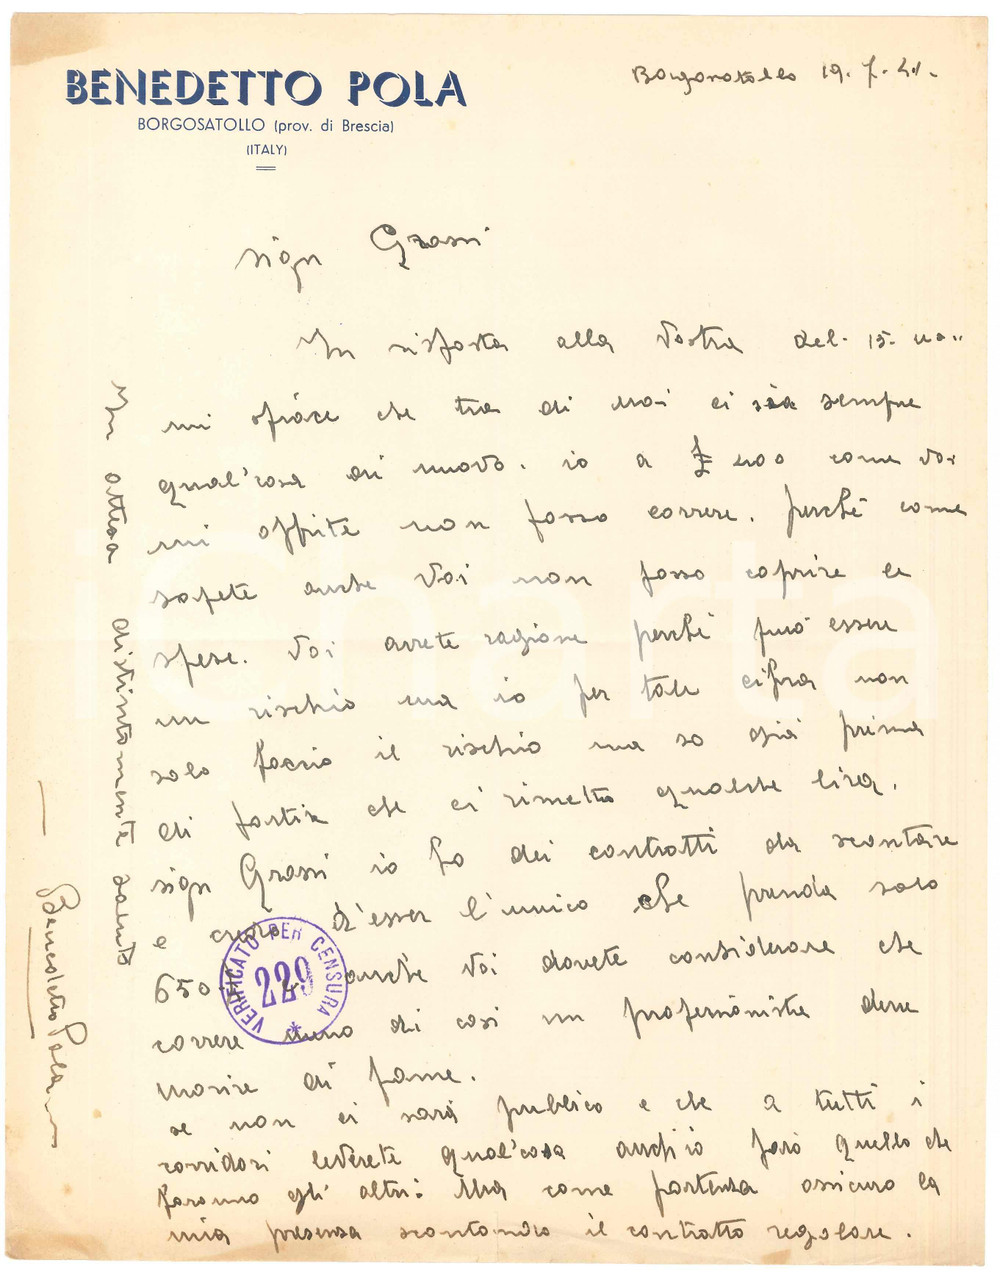 BENEDETTO POLA
BORGOSATOLLO (prov. di Brescia)
(ITALY)
Borgosatollo 19.7.41.
sign Grassi
In risposta alla Vostra del. 15.
mi spiace che tra di noi ci sia sempre
qual'cosa di nuovo. io a £ 400 come voi
mi offrite non posso correre. perchè come
sapete anche Voi non posso coprire le
spese. Voi avrete ragione perchè può essere
un rischio ma io per tale cifra non
solo faccio il rischio ma so già prima
di partire che ci rimetto qualche lira.
sign Grassi io ho dei contratti da scontare
e credo d'esser l'unico che prenda solo
650 anche Voi dovete considerare che
correre meno di così un professionista deve
morire di fame.
se non ci sarà pubblico e che a tutti i
corridori leverete qual'cosa anch'io farò quello che
faranno gli altri: Ma come partenza assicuro la
mia presenza scontando il contratto regolare.
In attesa distintamente saluto
Benedetto Pola
VERIFICATO PER CENSURA
229
iCharta